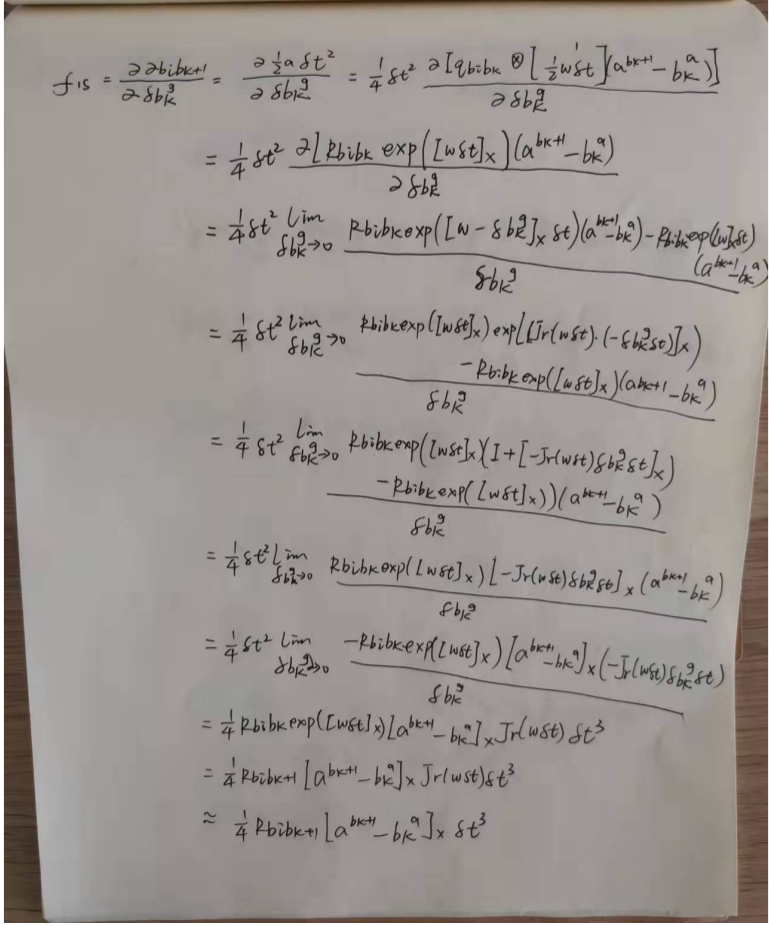 f15 = ∂∂bibk+1 / ∂δb_k^g = ∂ ½aδt² / ∂δb_k^g = ¼ δt² ∂[q_bibk ⊗ [1, ½wδt](a^{bk+1} − b_k^a)] / ∂δb_k^g
= ¼ δt² ∂[R_bibk exp([wδt]×)(a^{bk+1} − b_k^a) / ∂δb_k^g
= ¼ δt² lim_{δb_k^g→0} R_bibk exp([w − δb_k^g]× δt)(a^{bk+1} − b_k^a) − R_bibk exp([w]×δt)
(a^{bk+1} − b_k^a) / δb_k^g
= ¼ δt² lim_{δb_k^g→0} R_bibk exp([wδt]×) exp[([Jr(wδt)·(−δb_k^g δt)]×)
− R_bibk exp([wδt]×)(a^{bk+1} − b_k^a) / δb_k^g
= ¼ δt² lim_{δb_k^g→0} R_bibk exp([wδt]×)(I + [−Jr(wδt)δb_k^g δt]×)
− R_bibk exp([wδt]×))(a^{bk+1} − b_k^a) / δb_k^g
= ¼ δt² lim_{δb_k^g→0} R_bibk exp([wδt]×)[−Jr(wδt)δb_k^g δt]× (a^{bk+1} − b_k^a) / δb_k^g
= ¼ δt² lim_{δb_k^g→0} −R_bibk exp([wδt]×)[a^{bk+1} − b_k^a]× (−Jr(wδt)δb_k^g δt) / δb_k^g
= ¼ R_bibk exp([wδt]×)[a^{bk+1} − b_k^a]× Jr(wδt) δt³
= ¼ R_bibk+1 [a^{bk+1} − b_k^a]× Jr(wδt)δt³
≈ ¼ R_bibk+1 [a^{bk+1} − b_k^a]× δt³